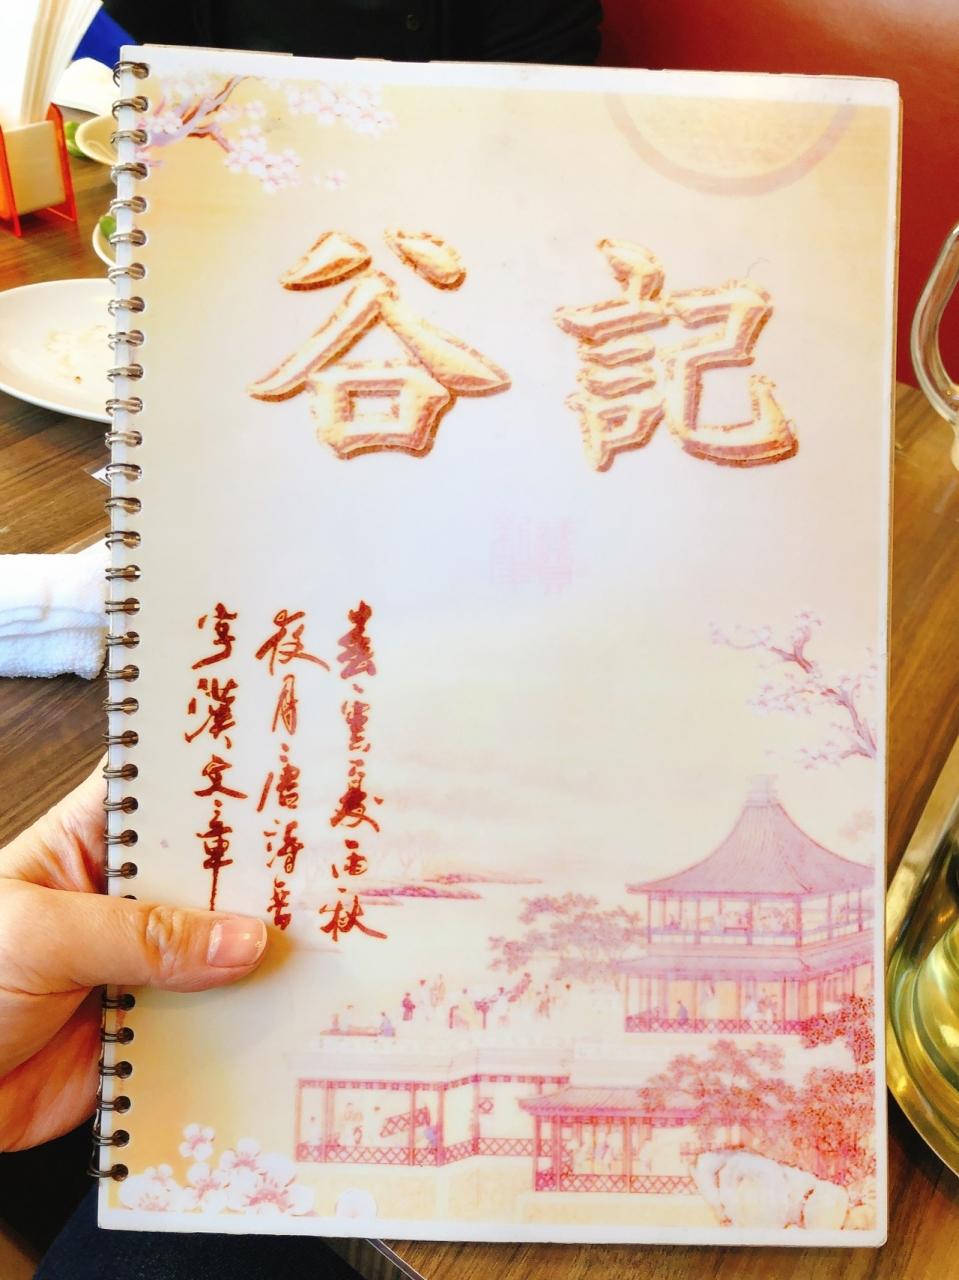 谷記
春雲夏雨秋
夜月唐詩晉
字漢文章